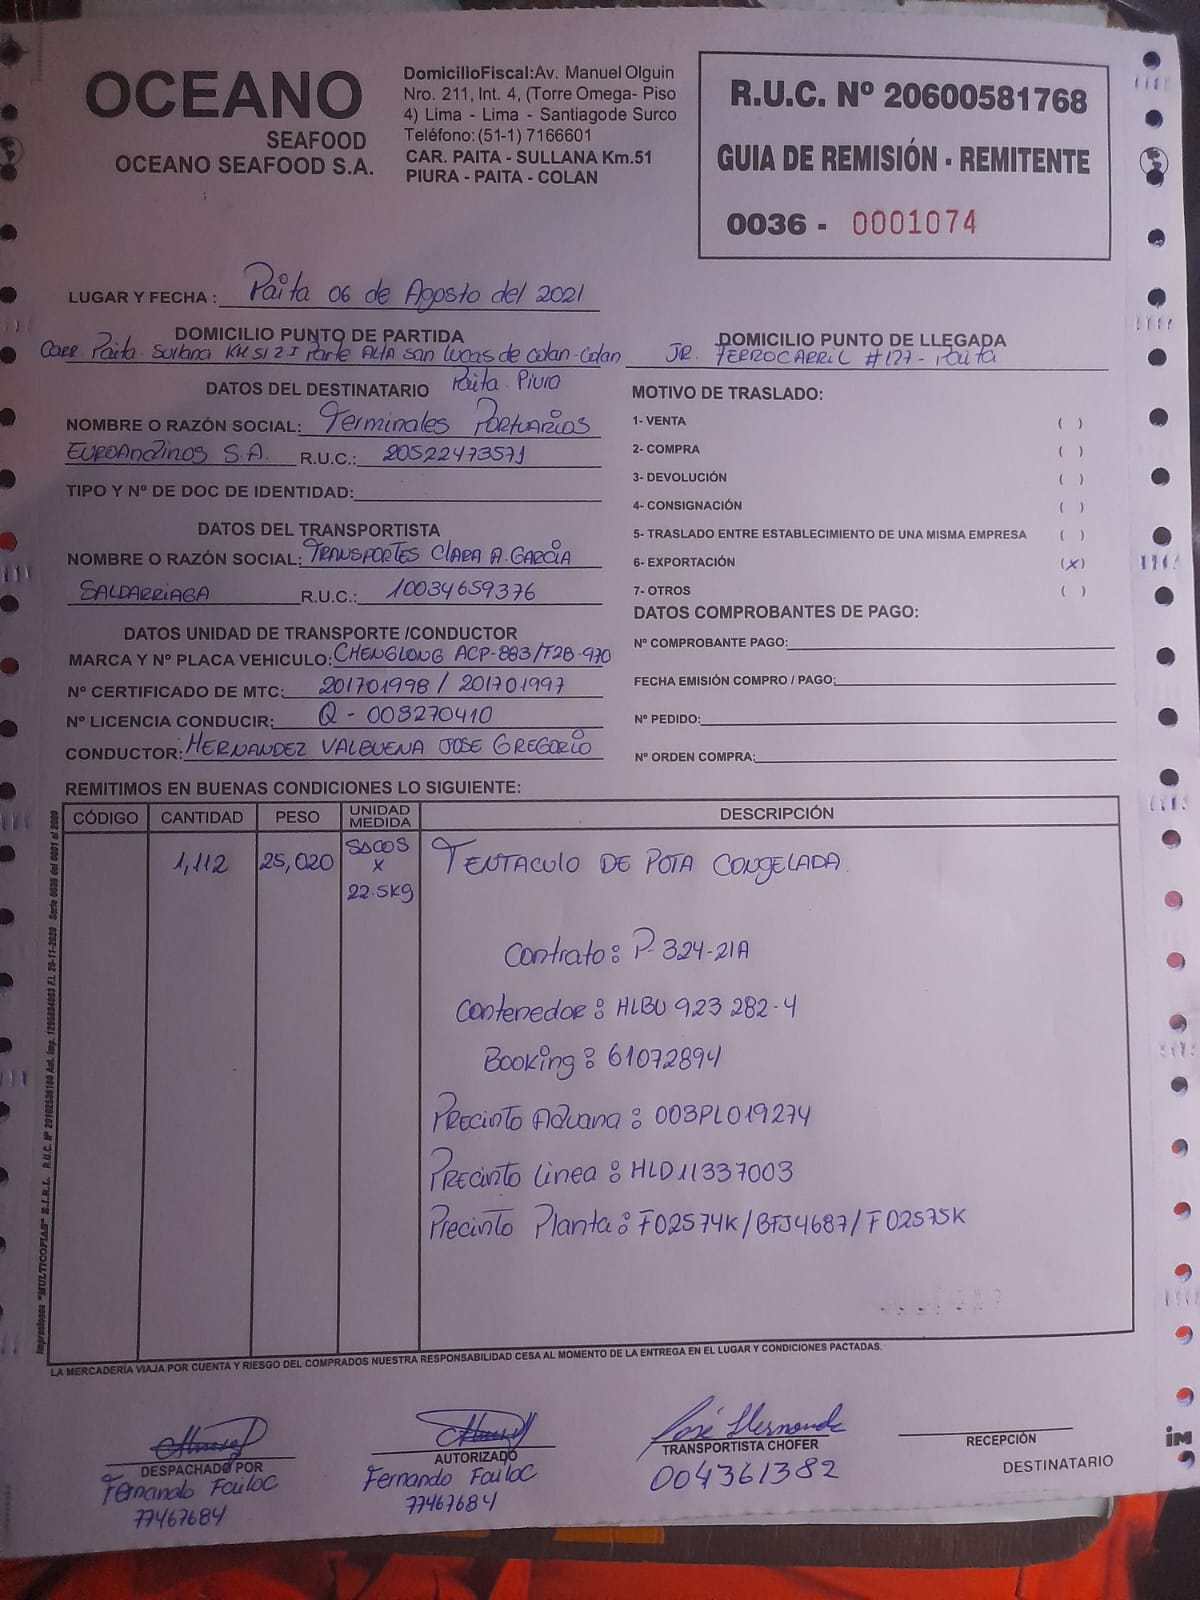 OCEANO
SEAFOOD
OCEANO SEAFOOD S.A.
DomicilioFiscal:Av. Manuel Olguin
Nro. 211, Int. 4, (Torre Omega- Piso
4) Lima - Lima - Santiagode Surco
Teléfono:(51-1) 7166601
CAR. PAITA - SULLANA Km.51
PIURA - PAITA - COLAN
R.U.C. Nº 20600581768
GUIA DE REMISIÓN - REMITENTE
0036 - 0001074
LUGAR Y FECHA : Paita 06 de Agosto del 2021
DOMICILIO PUNTO DE PARTIDA
Carr. Paita Sullana KM 51 2 I Parte Alta San Lucas de Colan-Colan
Paita Piura
DOMICILIO PUNTO DE LLEGADA
JR. FERROCARRIL #127 - Paita
DATOS DEL DESTINATARIO
NOMBRE O RAZÓN SOCIAL: Terminales Portuarios
EUROANDINOS S.A. R.U.C.: 20522473571
TIPO Y Nº DE DOC DE IDENTIDAD:
DATOS DEL TRANSPORTISTA
NOMBRE O RAZÓN SOCIAL: TRANSPORTES CLARA A. GARCIA
SALDARRIAGA R.U.C.: 10034659376
DATOS UNIDAD DE TRANSPORTE /CONDUCTOR
MARCA Y Nº PLACA VEHICULO: CHENGLONG ACP-883/F2B-970
Nº CERTIFICADO DE MTC: 201701998 / 201701997
Nº LICENCIA CONDUCIR: Q - 003270410
CONDUCTOR: HERNANDEZ VALBUENA JOSE GREGORIO
MOTIVO DE TRASLADO:
1- VENTA ( )
2- COMPRA ( )
3- DEVOLUCIÓN ( )
4- CONSIGNACIÓN ( )
5- TRASLADO ENTRE ESTABLECIMIENTO DE UNA MISMA EMPRESA ( )
6- EXPORTACIÓN (X)
7- OTROS ( )
DATOS COMPROBANTES DE PAGO:
Nº COMPROBANTE PAGO:
FECHA EMISIÓN COMPRO / PAGO:
Nº PEDIDO:
Nº ORDEN COMPRA:
REMITIMOS EN BUENAS CONDICIONES LO SIGUIENTE:
CÓDIGO CANTIDAD PESO UNIDAD MEDIDA DESCRIPCIÓN
1,112 25,020 SACOS x 22.5kg TENTACULO DE POTA CONGELADA
Contrato: P-324-21A
Contenedor: HLBU 923 282-4
Booking: 61072894
Precinto Aduana: 003PL019274
Precinto Linea: HLD11337003
Precinto Planta: F02574K/BFJ4687/F02575K
LA MERCADERÍA VIAJA POR CUENTA Y RIESGO DEL COMPRADOS NUESTRA RESPONSABILIDAD CESA AL MOMENTO DE LA ENTREGA EN EL LUGAR Y CONDICIONES PACTADAS.
DESPACHADO POR
Fernando Failoc
77467684
AUTORIZADO
Fernando Failoc
77467684
José Hernande
TRANSPORTISTA CHOFER
004361382
RECEPCIÓN
DESTINATARIO
im